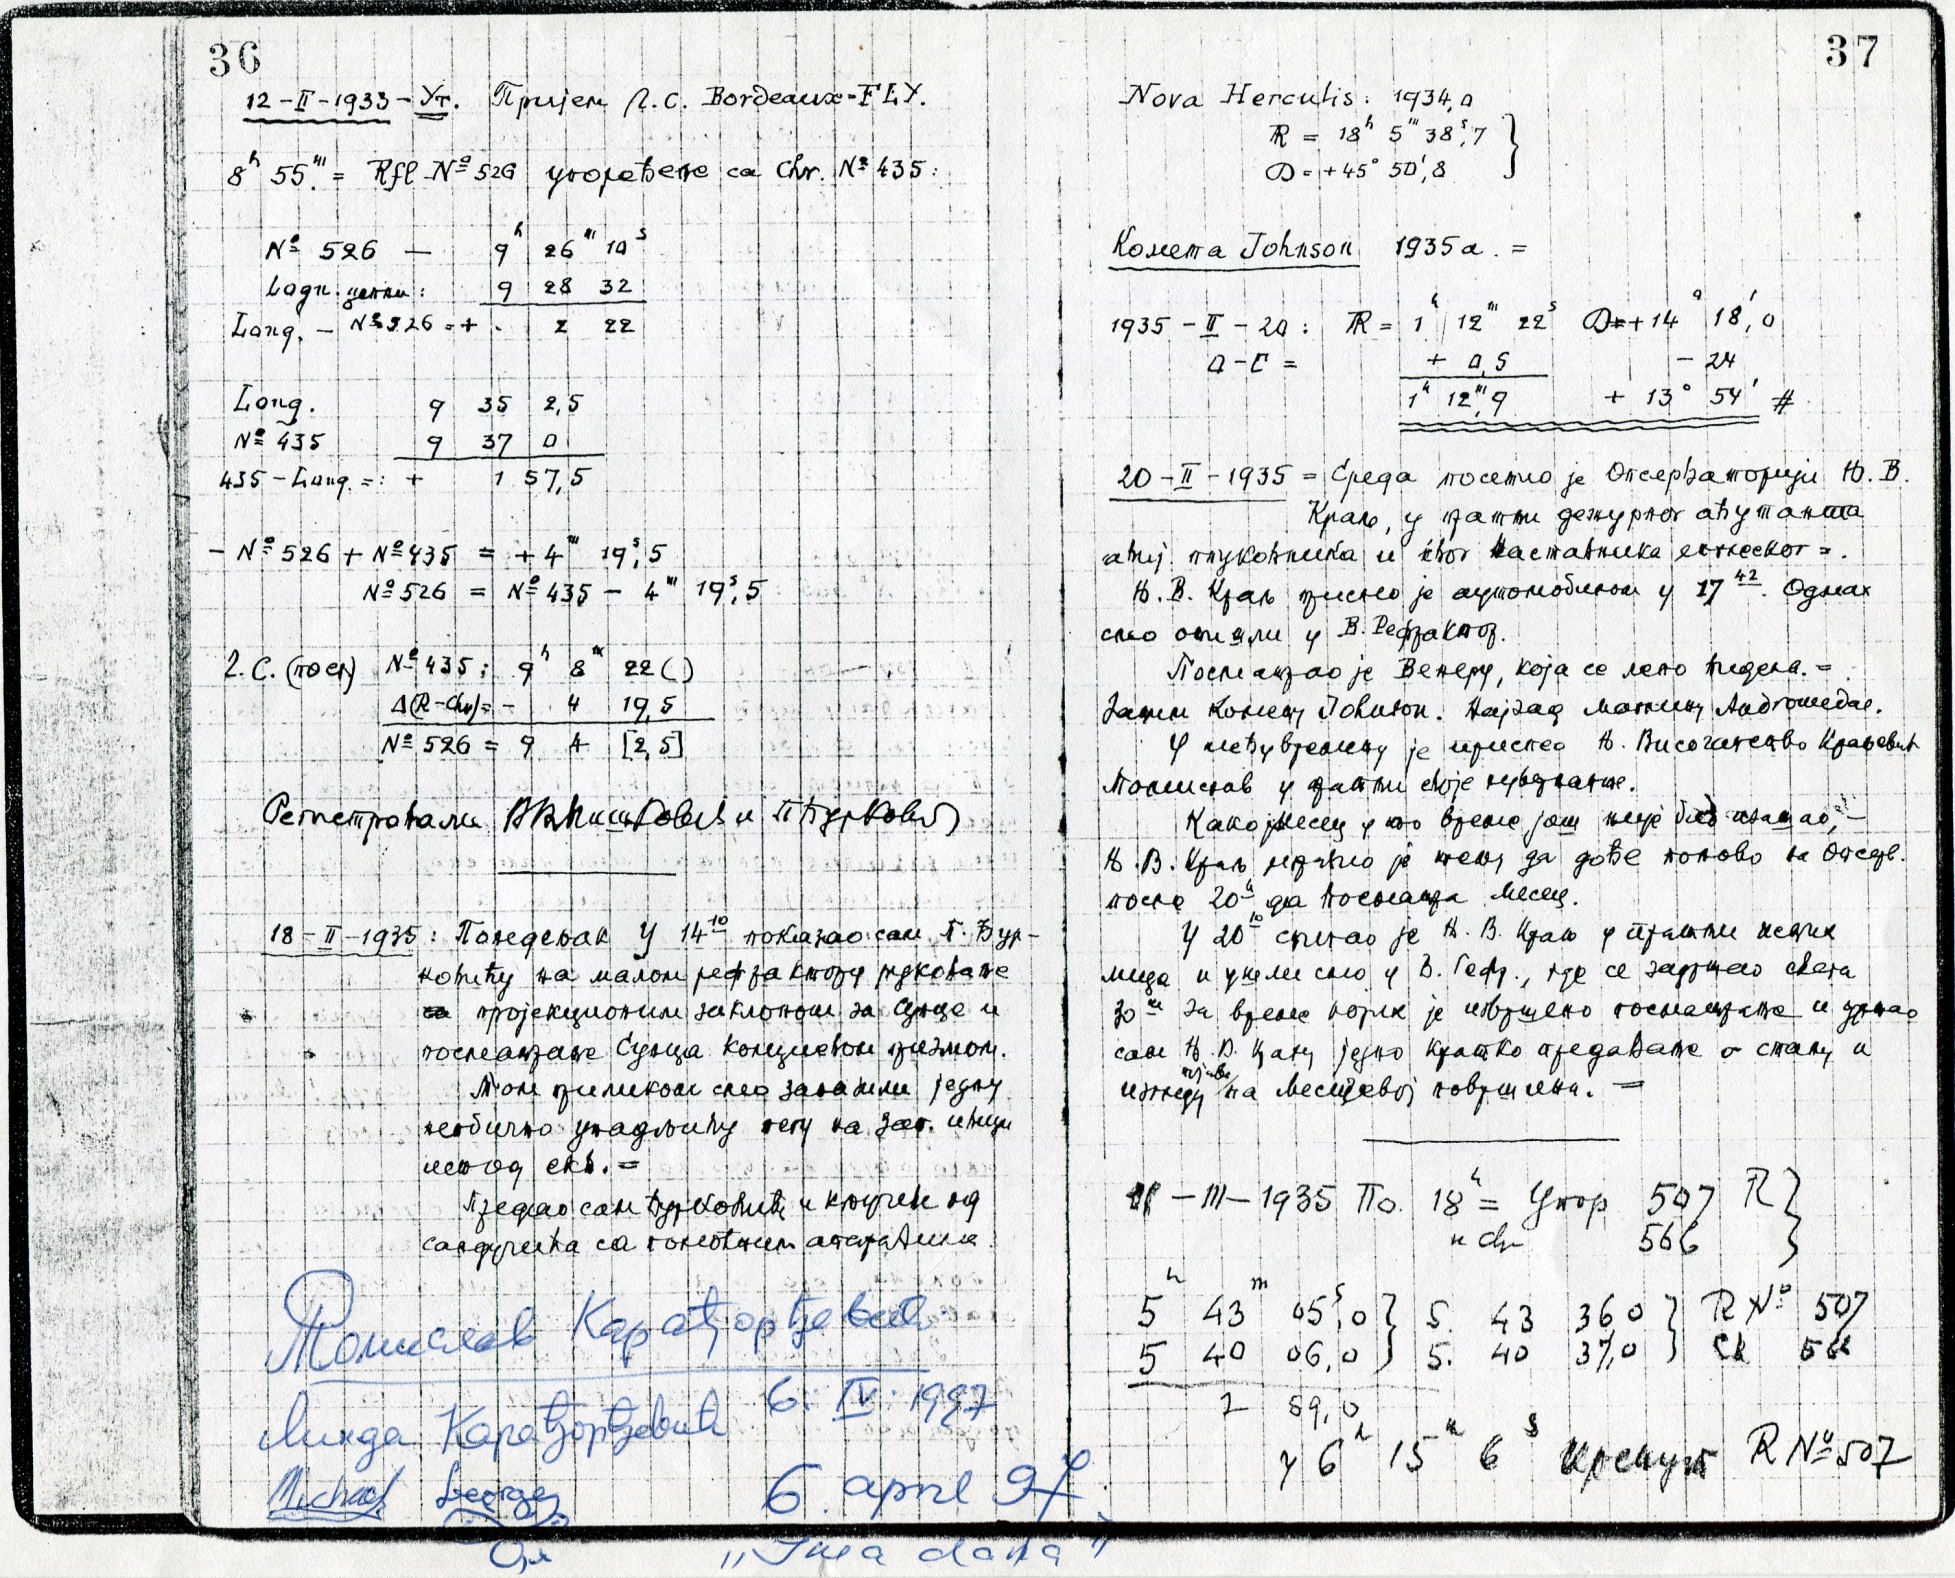 36
12-II-1933-Ут. Пријем Г.С. Bordeaux-FLY.
8h 55m = Rfl-№ 526 упоређење са Chr. № 435:
№ 526 — 9h 26m 10s
9 28 32
Long. - № 526 = + . 2 22
Long. 9 35 2,5
№ 435 9 37 0
435-Long. =: + 1 57,5
- № 526 + № 435 = + 4m 19s,5
№ 526 = № 435 - 4m 19s,5
2. С. (посл) № 435: 9h 8m 22()
Δ(R-Chr) = - 4 19,5
№ 526 = 9 4 [2,5]
Регистровали и П Ђурковић
18-II-1935: Понедељак у 14 10 показао сам Г. Ђур-
ковићу на малом рефрактору руковање
пројекционим заклоном за Сунце и
посматрање Сунца призмом.
Том приликом смо запазили једну
необично упадљиву пегу на зап. ивици
испод екв. =
Предао сам Ђурковићу и кључеве од
сандучића са апаратима
Томислав Карађорђевић
6. IV. 1997
Линда Карађорђевић
Michael George
6. april 97
37
Nova Herculis: 1934,0
R = 18h 5m 38s,7
D = +45° 50',8
Комета Johnson 1935a. =
1935-II-20: R = 1h 12m 22s D = +14° 18',0
O-C = + 0,5 - 24
1h 12m,9 + 13° 54' #
20-II-1935 = Среда посетио је Опсерваторију Њ. В.
Краљ, у пратњи дежурног ађутанта
ађ. пуковника и свог наставника енглеског =.
Њ. В. Краљ приспео је аутомобилом у 17 42. Одмах
смо отишли у В. Рефрактор.
Посматрао је Венеру, која се лепо видела. =
Затим Комету Johnson. Најзад маглину Andromedae.
У међувремену је приспео Њ. Височанство Краљевић
Томислав у пратњи своје гувернанте.
Како Месец у то време још није био изашао, -
Њ. В. Краљ изразио је жељу да дође поново на Опсерв.
после 20h да посматра Месец.
У 20 10 стигао је Њ. В. Краљ у пратњи истих
лица и ушли смо у В. Реф., где се задржао свега
30m за време којих је извршено посматрање и држао
сам Њ. В. Краљу једно кратко предавање о стању и
изгледу на Месечевој површини. =
-III-1935 По. 18h = Упор 507 R
и Ch 566
5h 43m 05s,0 } 5. 43 36 0 } R № 507
5 40 06,0 } 5. 40 37,0 } Ch 566
2 59,0
у 6h 15m 6s R № 507